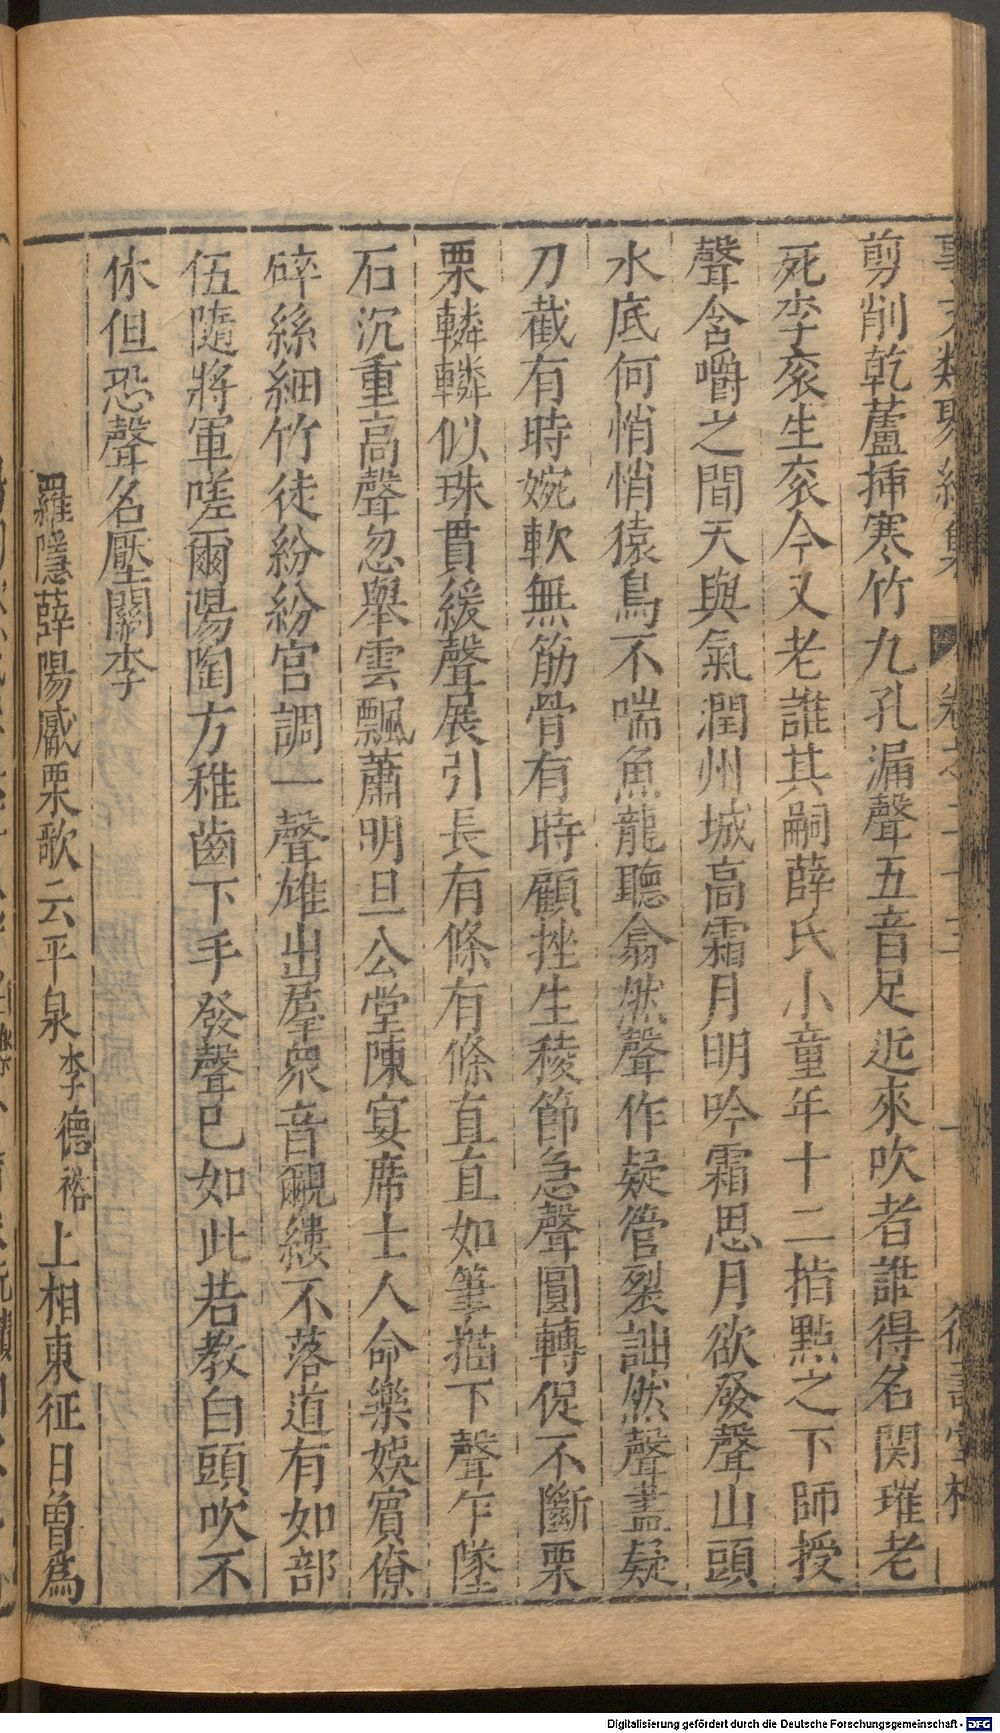 事文類聚續集 卷之二十三
剪削乾蘆揷寒竹九孔漏聲五音足近來吹者誰得名関璀老
死李衮生衮今又老誰其嗣薛氏小童年十二指點之下師授
聲含嚼之間天與氣潤州城高霜月明吟霜思月欲發聲山頭
水底何悄悄猿鳥不喘魚龍聽翕然聲作疑管裂詘然聲盡疑
刀截有時婉軟無筋骨有時顧挫生稜節急聲圓轉促不斷栗
栗轔轔似珠貫緩聲展引長有條有條直直如筆描下聲乍墜
石沉重高聲忽舉雲飄蕭明旦公堂陳宴席士人命樂娛賓僚
碎絲細竹徒紛紛宮調一聲雄出羣衆音覼縷不落道有如部
伍隨將軍嗟爾陽陶方稚齒下手發聲已如此若教白頭吹不
休但恐聲名壓關李
羅隱薛陽感栗歌云平泉李德裕上相東征日曾爲
Digitalisierung gefördert durch die Deutsche Forschungsgemeinschaft - DFG